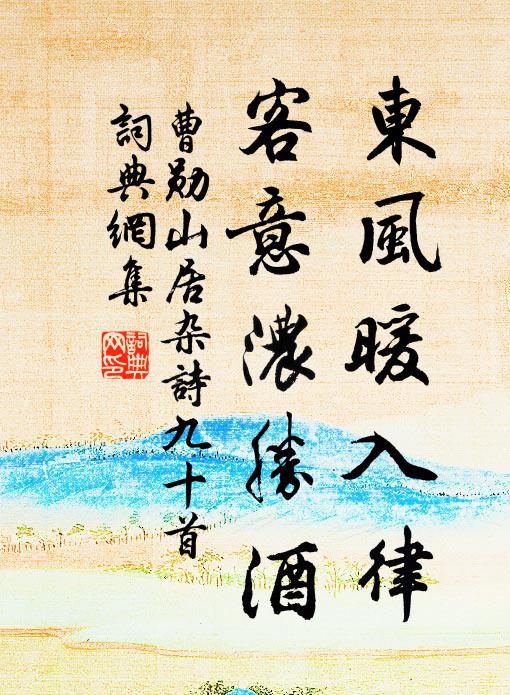 東風暖入律
客意濃勝酒
曹勛山居杂詩九十首
詞典網集
詞典
网印